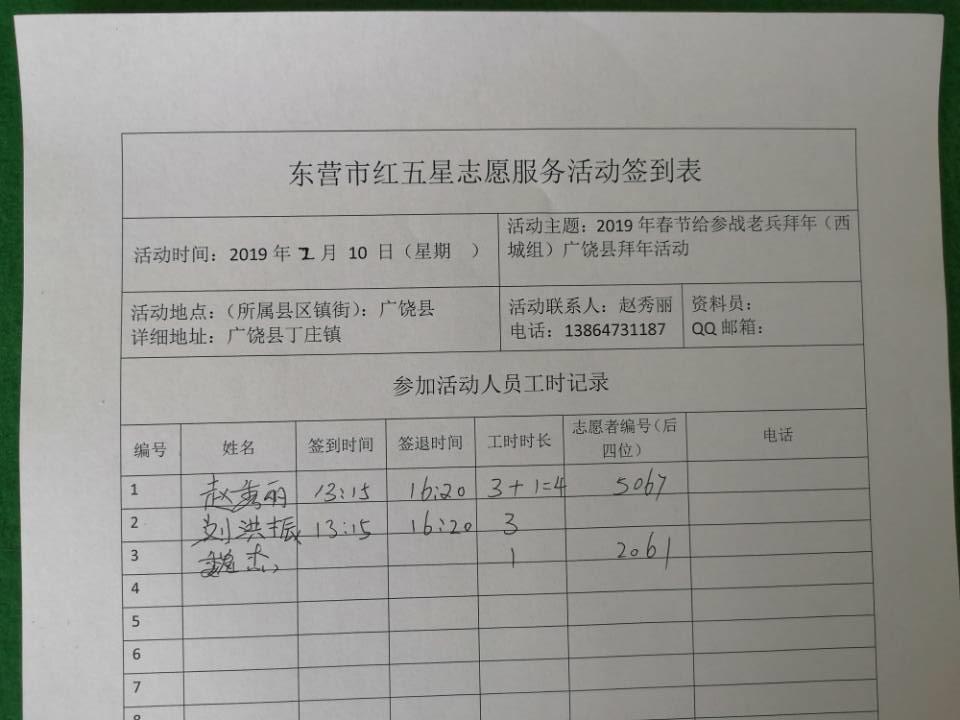 东营市红五星志愿服务活动签到表
活动时间：2019年2月10日（星期 ）
活动主题：2019年春节给参战老兵拜年（西
城组）广饶县拜年活动
活动地点：（所属县区镇街）：广饶县
详细地址：广饶县丁庄镇
活动联系人：赵秀丽
电话：13864731187
资料员：
QQ邮箱：
参加活动人员工时记录
编号 姓名 签到时间 签退时间 工时时长 志愿者编号（后
四位） 电话
1 赵秀丽 13:15 16:20 3+1=4 5067
2 刘洪振 13:15 16:20 3
3 魏杰 1 2061
4
5
6
7
8